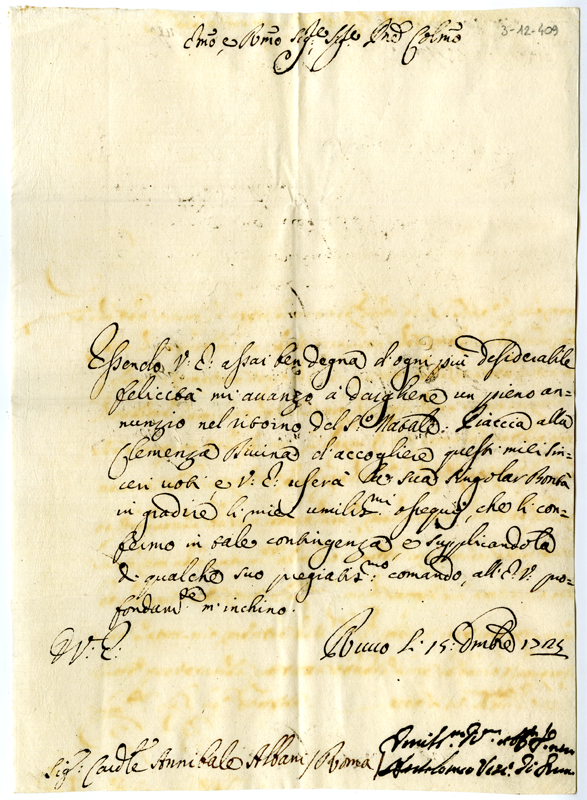 3-12-409
Emo, e Rmo Sig.re Sig.re Pnđ Colmo
Essendo V: E: assai ben degna d'ogni più desiderabile
felicità mi avanzo à dargliene un pieno an=
nunzio nel ritorno del S.to Natale: Piaccia alla
Clemenza Divina d'accogliere questi miei sin=
ceri voti, e V: E: userà la sua singolar Bontà
in gradire li miei umiliss.mi ossequij, che li con=
fermo in tale contingenza, e supplicandola
di qualche suo pregiatis.mo comando, all'E: V: pro=
fondam.te m'inchino.
D V: E:
Ruvo li 15: Xmbre 1725
Sig.r Cardle Annibale Albani / Roma /
Umilis.mo
Bartolomeo Vesc.o di Ruvo